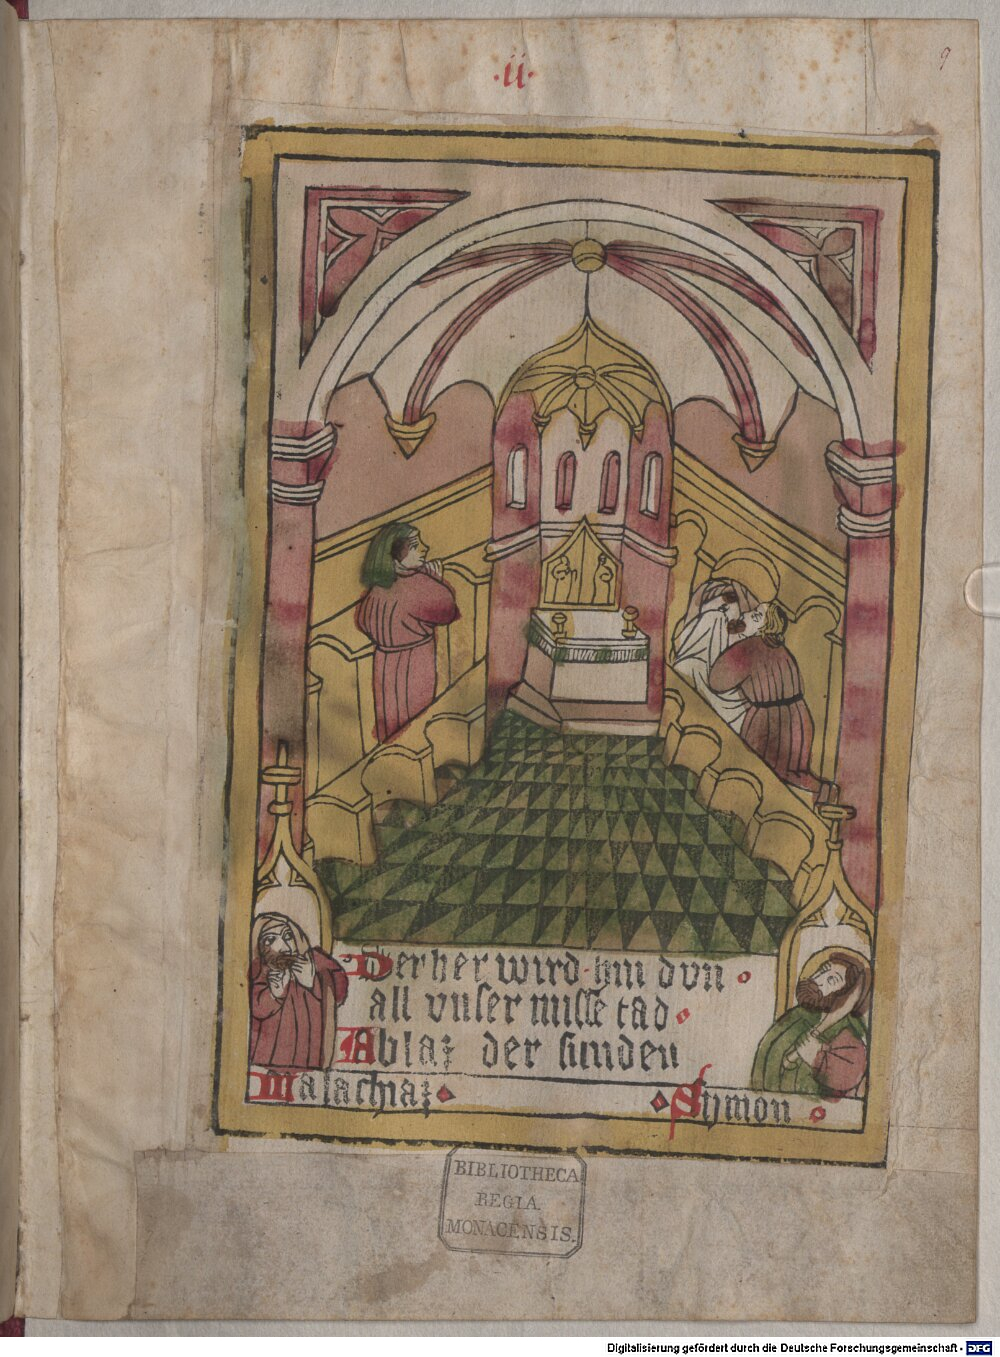 ·ii·
9
Der her wird hin dun
all vnser misse tad
Ablaz der sunden
Malachiaz
Symon
BIBLIOTHECA
REGIA
MONACENSIS.
Digitalisierung gefördert durch die Deutsche Forschungsgemeinschaft - DFG